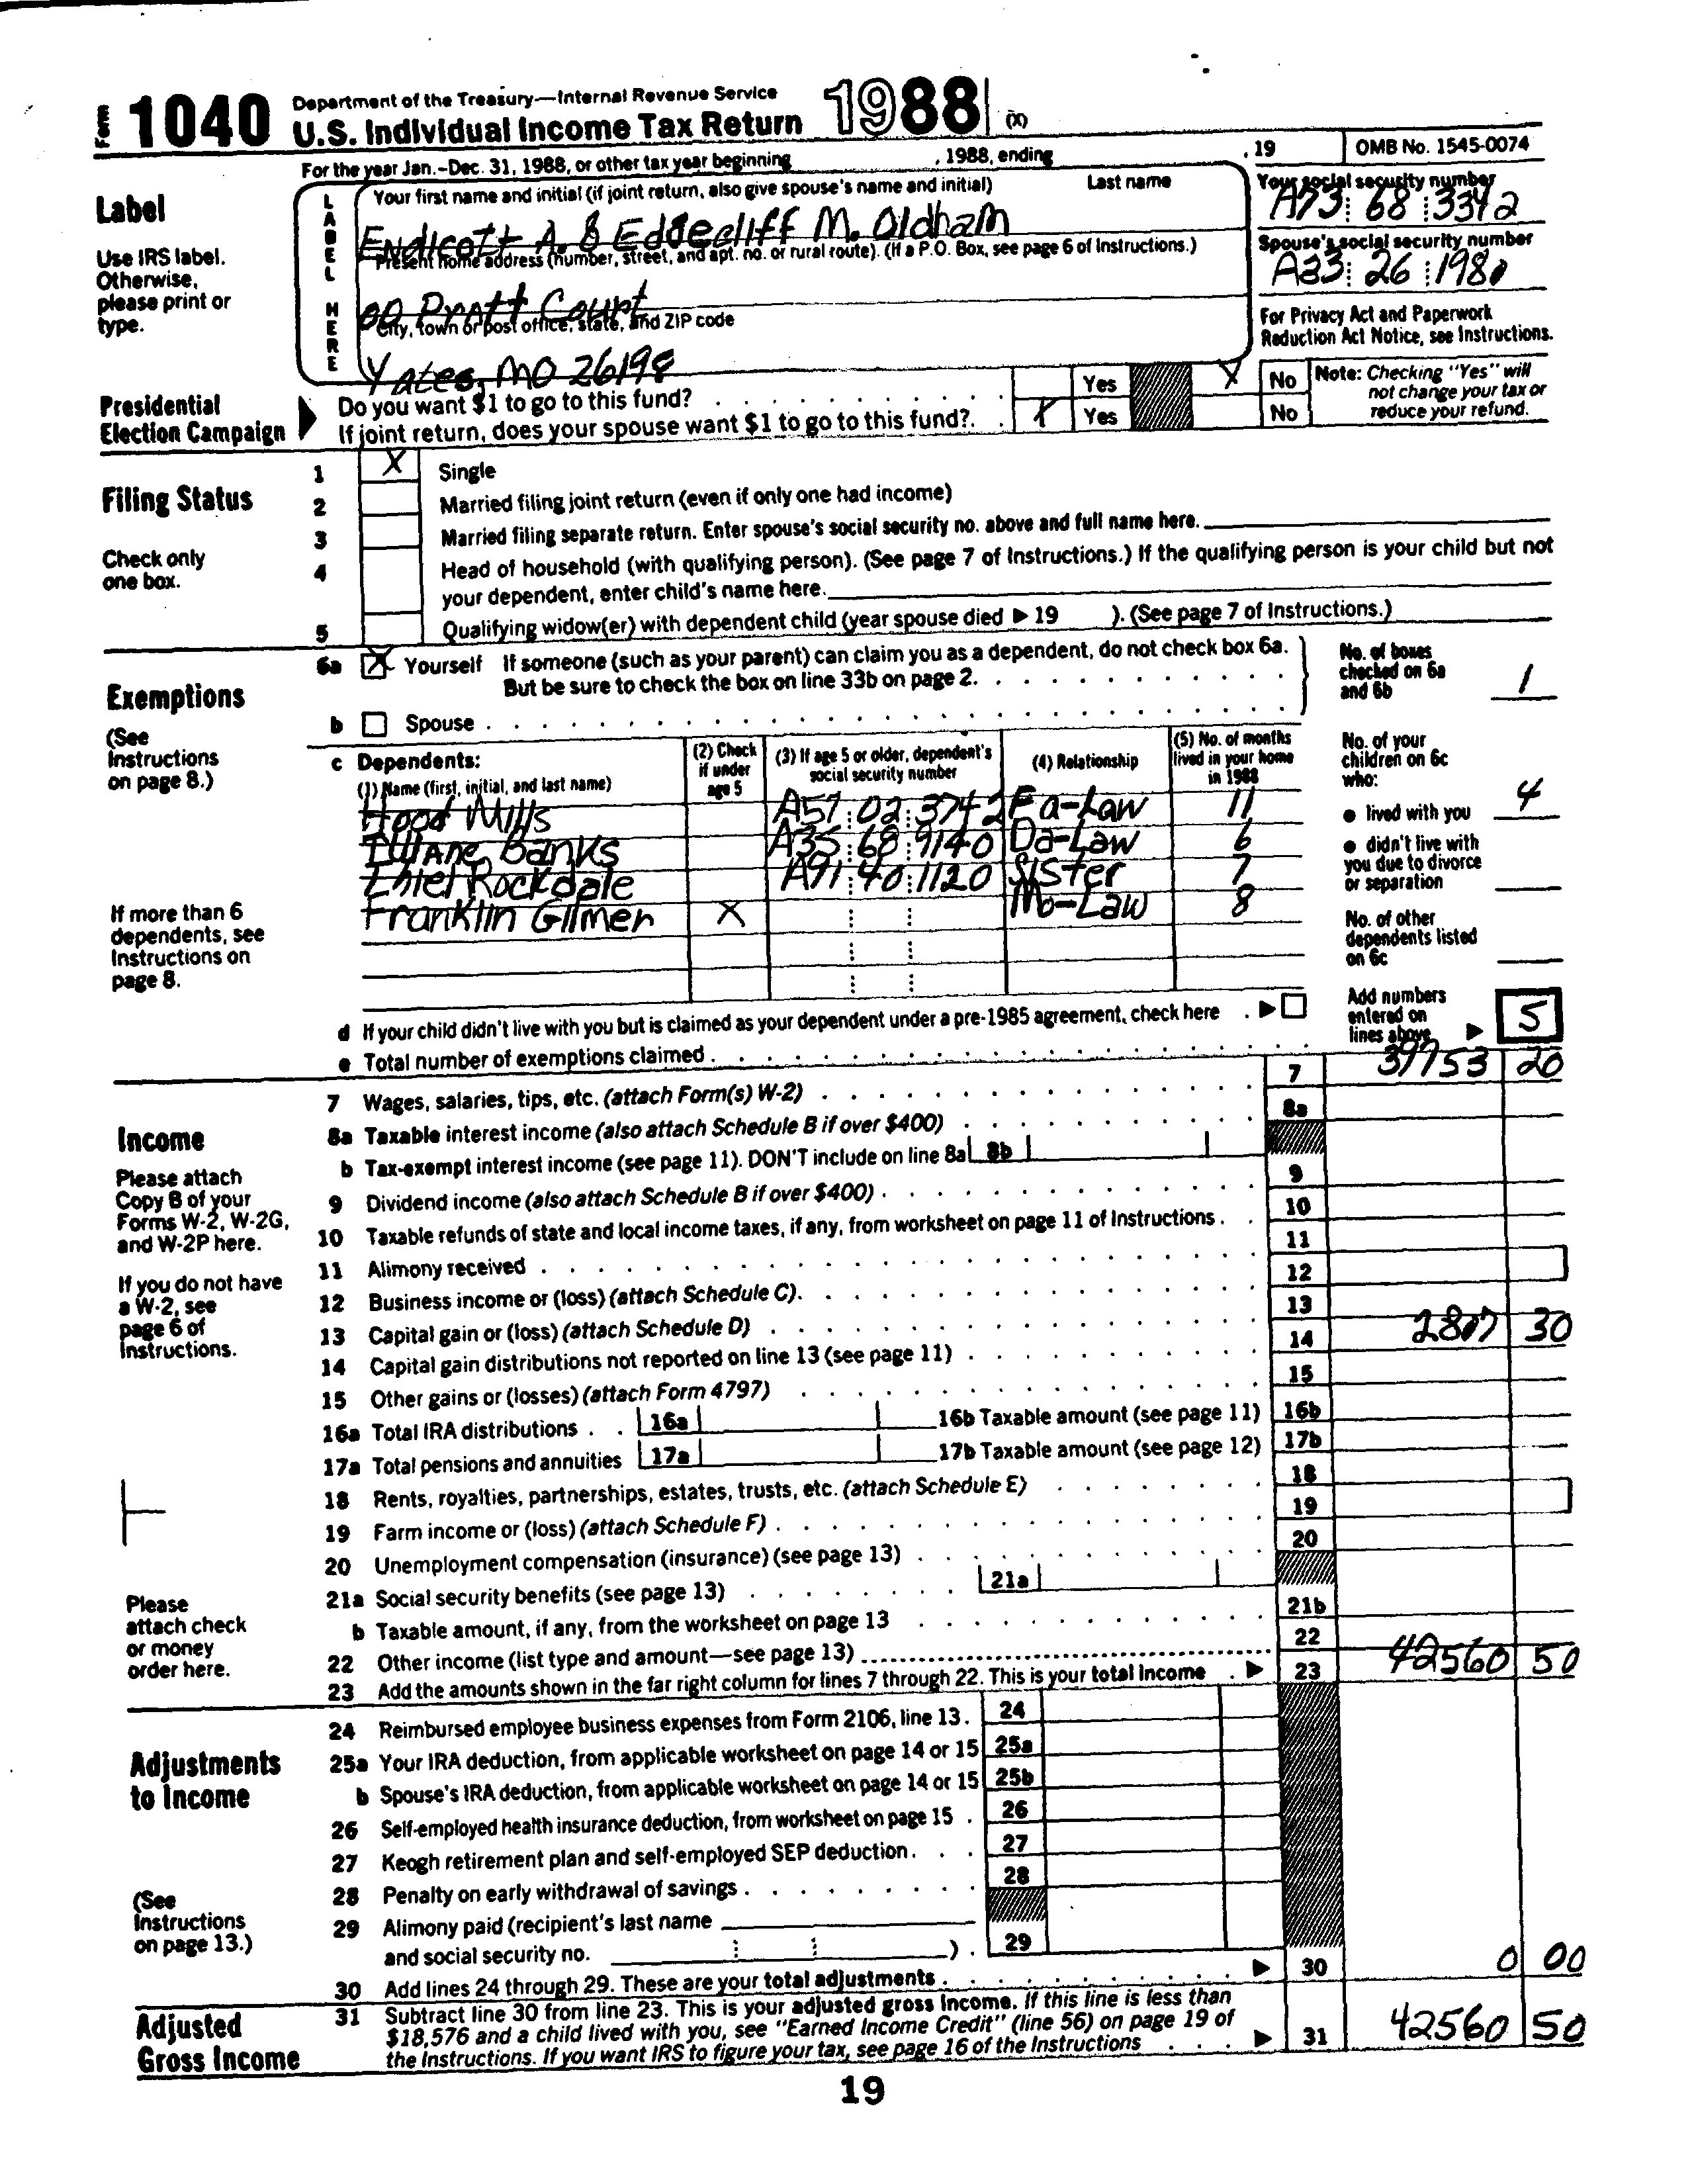 Form 1040 Department of the Treasury—Internal Revenue Service
U.S. Individual Income Tax Return 1988 (X)
For the year Jan.–Dec. 31, 1988, or other tax year beginning , 1988, ending , 19 OMB No. 1545-0074
Label
Use IRS label.
Otherwise,
please print or
type.
LABEL HERE
Your first name and initial (if joint return, also give spouse's name and initial) Last name
Endicott A. & Edgecliff M. Oldham
Your social security number
A73 68 3342
Present home address (number, street, and apt. no. or rural route). (If a P.O. Box, see page 6 of Instructions.)
00 Pratt Court
Spouse's social security number
A33 26 1980
City, town or post office, state, and ZIP code
Yates, MO 26198
For Privacy Act and Paperwork
Reduction Act Notice, see Instructions.
Presidential
Election Campaign
Do you want $1 to go to this fund? Yes X No
If joint return, does your spouse want $1 to go to this fund? X Yes No
Note: Checking "Yes" will
not change your tax or
reduce your refund.
Filing Status
Check only
one box.
1 X Single
2 Married filing joint return (even if only one had income)
3 Married filing separate return. Enter spouse's social security no. above and full name here.
4 Head of household (with qualifying person). (See page 7 of Instructions.) If the qualifying person is your child but not
your dependent, enter child's name here.
5 Qualifying widow(er) with dependent child (year spouse died ▶ 19 ). (See page 7 of Instructions.)
Exemptions
(See
Instructions
on page 8.)
6a X Yourself If someone (such as your parent) can claim you as a dependent, do not check box 6a.
But be sure to check the box on line 33b on page 2.
b Spouse
No. of boxes
checked on 6a
and 6b 1
c Dependents:
(1) Name (first, initial, and last name)
(2) Check
if under
age 5
(3) If age 5 or older, dependent's
social security number
(4) Relationship
(5) No. of months
lived in your home
in 1988
Hood Mills A57 02 3742 Fa-Law 11
Banks A35 68 9140 Da-Law 6
Rockdale A91 40 1120 Sister 7
Franklin Gilmer X Mo-Law 8
If more than 6
dependents, see
Instructions on
page 8.
No. of your
children on 6c
who:
● lived with you 4
● didn't live with
you due to divorce
or separation
No. of other
dependents listed
on 6c
d If your child didn't live with you but is claimed as your dependent under a pre-1985 agreement, check here ▶
e Total number of exemptions claimed
Add numbers
entered on
lines above ▶ 5
Income
Please attach
Copy B of your
Forms W-2, W-2G,
and W-2P here.
If you do not have
a W-2, see
page 6 of
Instructions.
Please
attach check
or money
order here.
7 Wages, salaries, tips, etc. (attach Form(s) W-2) 7 39753 20
8a Taxable interest income (also attach Schedule B if over $400) 8a
b Tax-exempt interest income (see page 11). DON'T include on line 8a 8b
9 Dividend income (also attach Schedule B if over $400) 9
10 Taxable refunds of state and local income taxes, if any, from worksheet on page 11 of Instructions 10
11 Alimony received 11
12 Business income or (loss) (attach Schedule C) 12
13 Capital gain or (loss) (attach Schedule D) 13
14 Capital gain distributions not reported on line 13 (see page 11) 14 2807 30
15 Other gains or (losses) (attach Form 4797) 15
16a Total IRA distributions 16a 16b Taxable amount (see page 11) 16b
17a Total pensions and annuities 17a 17b Taxable amount (see page 12) 17b
18 Rents, royalties, partnerships, estates, trusts, etc. (attach Schedule E) 18
19 Farm income or (loss) (attach Schedule F) 19
20 Unemployment compensation (insurance) (see page 13) 20
21a Social security benefits (see page 13) 21a
b Taxable amount, if any, from the worksheet on page 13 21b
22 Other income (list type and amount—see page 13) 22
23 Add the amounts shown in the far right column for lines 7 through 22. This is your total income ▶ 23 42560 50
Adjustments
to Income
(See
Instructions
on page 13.)
24 Reimbursed employee business expenses from Form 2106, line 13. 24
25a Your IRA deduction, from applicable worksheet on page 14 or 15 25a
b Spouse's IRA deduction, from applicable worksheet on page 14 or 15 25b
26 Self-employed health insurance deduction, from worksheet on page 15 26
27 Keogh retirement plan and self-employed SEP deduction 27
28 Penalty on early withdrawal of savings 28
29 Alimony paid (recipient's last name
and social security no. ) 29
30 Add lines 24 through 29. These are your total adjustments ▶ 30 0 00
Adjusted
Gross Income
31 Subtract line 30 from line 23. This is your adjusted gross income. If this line is less than
$18,576 and a child lived with you, see "Earned Income Credit" (line 56) on page 19 of
the Instructions. If you want IRS to figure your tax, see page 16 of the Instructions ▶ 31 42560 50
19